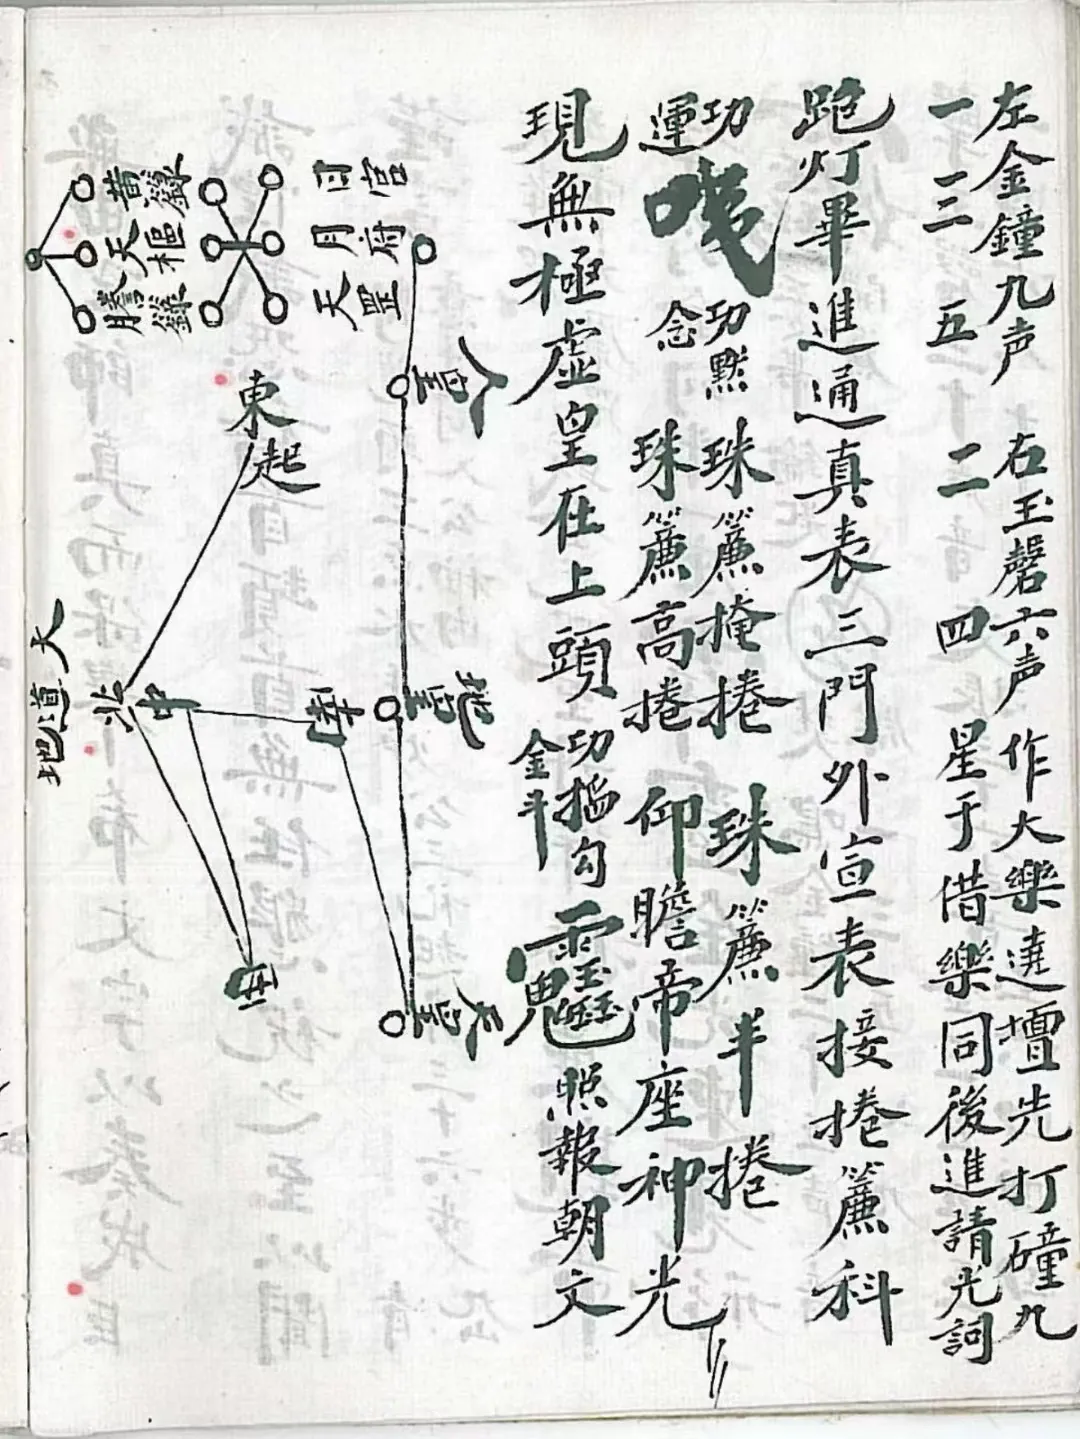 左金鐘九声　右玉磬六声　作大樂遶壇先打礶九
一　三　五　二　四　星于借樂同後進請光詞
跪灯畢進通真表三門外宣表接捲簾科
功運　功默念　珠簾掩捲　珠簾半捲
珠簾高捲　仰瞻帝座神光
現無極虛皇在上頭　功搖勾金斗　照報朝文
日宮
月府
天罡
黃籙
天樞
謄籙
東起
北
中
天
地道